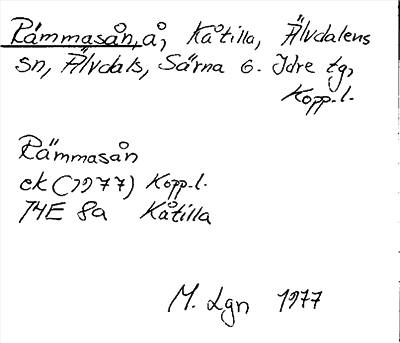 Rämmasån, å, Kåtilla, Älvdalens
sn, Älvdals, Särna o. Idre tg,
Kopp.l.
Rämmasån
ek (1977) Kopp.l.
14E 8a Kåtilla
M. Lgn 1977